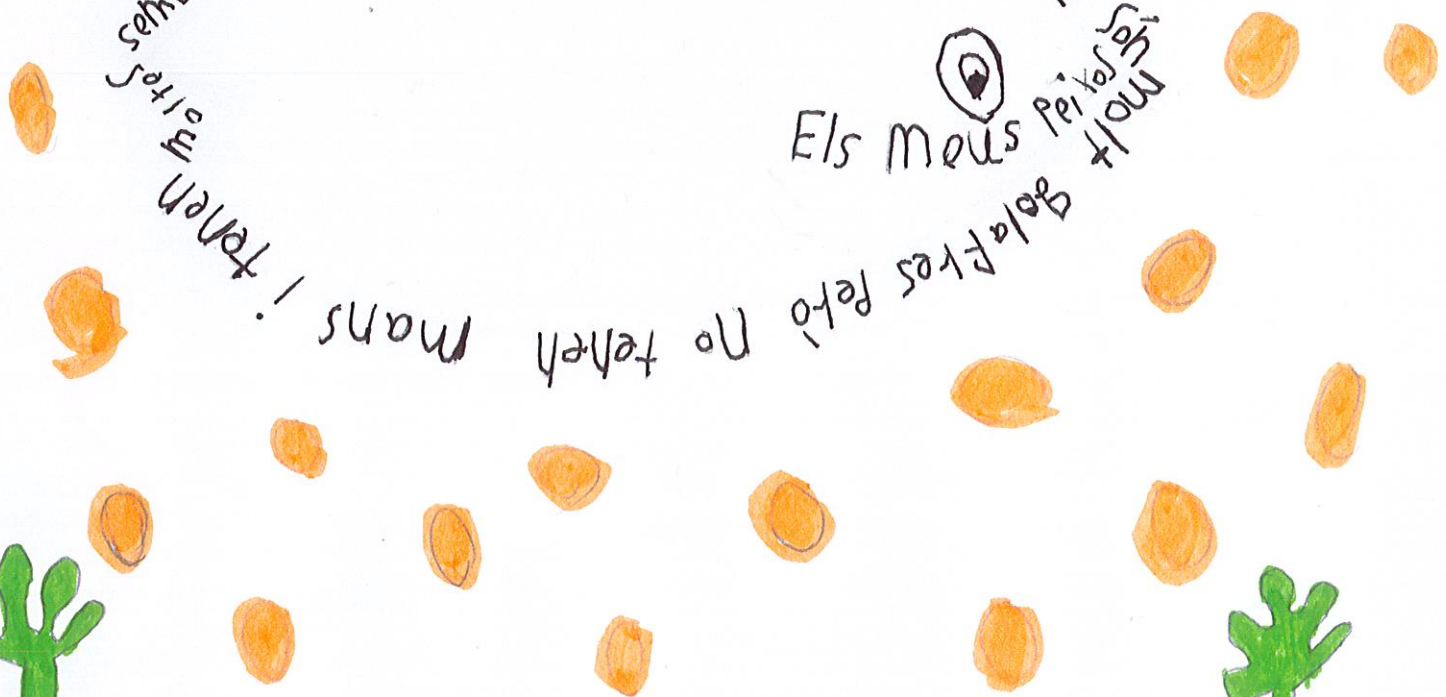 Els meus peixos
són
molt golafres però no tenen mans i tenen moltes